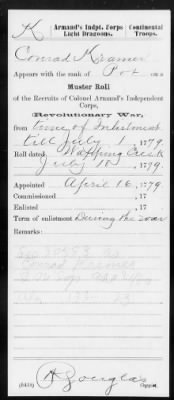 K Armand's Indpt. Corps Light Dragoons. Continental Troops.
Conrad Kramer
Appears with the rank of Pvt on a
Muster Roll
of the Recruits of Colonel Armand's Independent
Corps,
Revolutionary War,
from time of Inlistment
till July 1, 1779.
Roll dated Wapping Creek
July 18, 1779.
Appointed April 16, 1779.
Commissioned , 17
Enlisted , 17
Term of enlistment During the war
Remarks:
Douglas
(543d) Copyist.